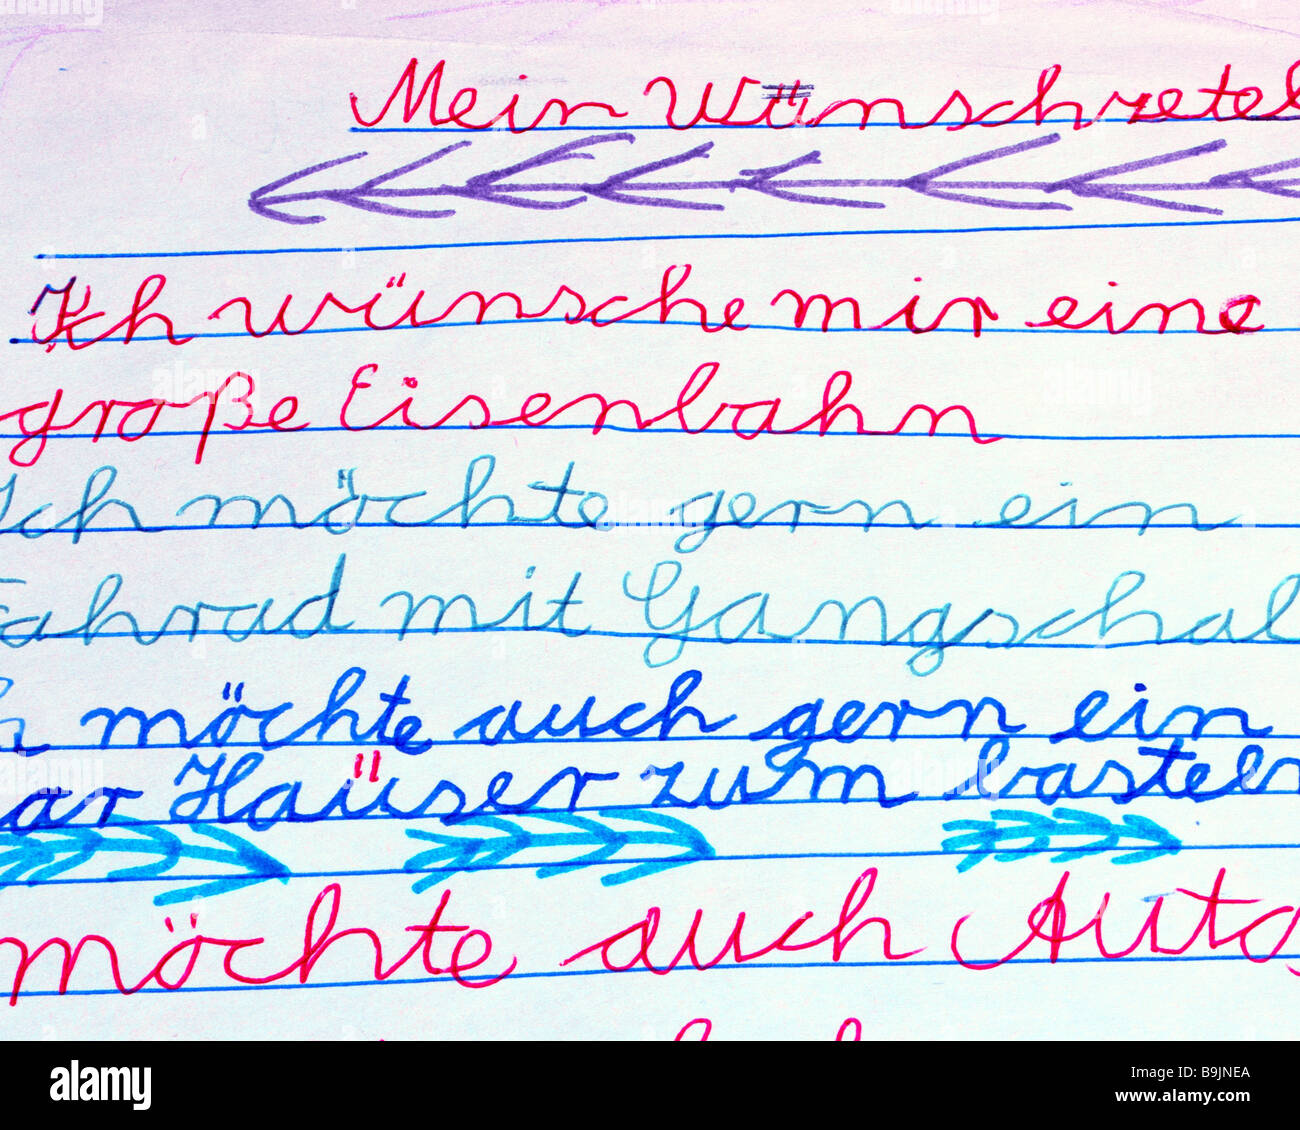 Mein Wünschzetel
Ich wünsche mir eine
große Eisenbahn
Ich möchte gern ein
Fahrad mit Gangschal
h möchte auch gern ein
ar Haüser zum basteln
möchte auch Auto
alamy
Image ID: B9JNEA
www.alamy.com